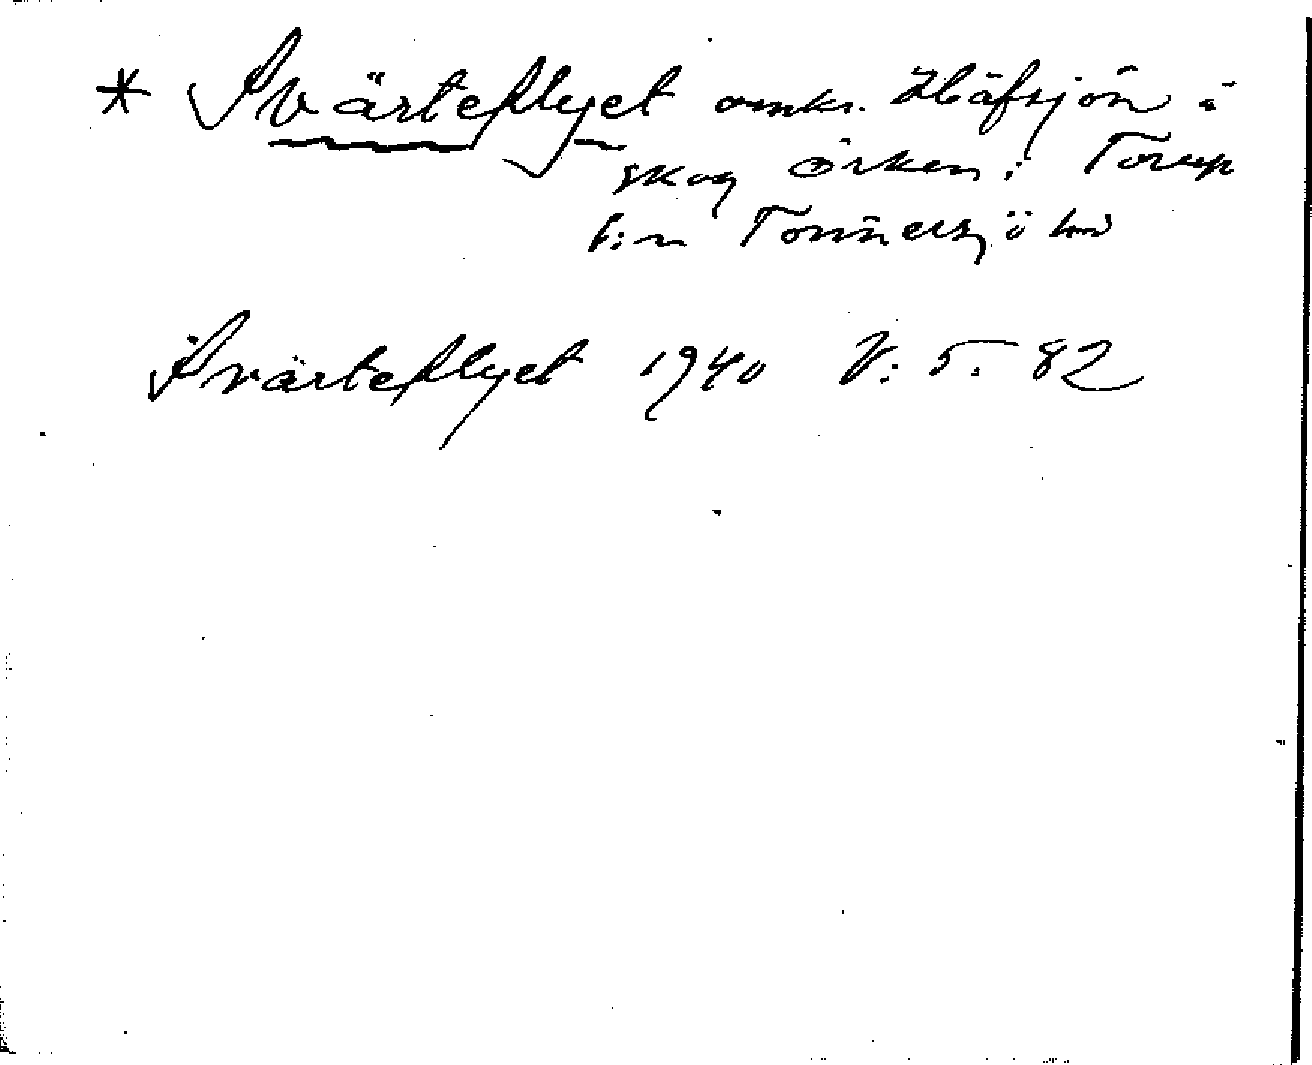 * Svärteflyet omkr. Hläfsjön å
skog Örken i Torup
f:n Tönnersjö hd
Svärteflyet 1940 V: 5. 82